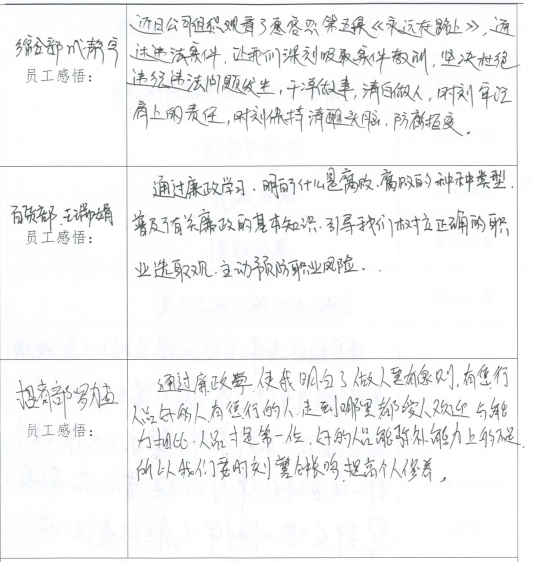 综合部 代静宇
员工感悟：
近日公司组织观看了廉客思第五集《永远在路上》，通
过违法案件，让我们深刻吸取案件教训，坚决杜绝
违纪违法问题发生，干净做事，清白做人，时刻牢记
肩上的责任，时刻保持清醒头脑，防腐拒变。
百货部 王瑞娟
员工感悟：
通过廉政学习，明白了什么是腐败，腐败的种种类型，
普及了有关廉政的基本知识，引导我们树立正确的职
业选取观，主动预防职业风险．．
招商部
员工感悟：
通过廉政学，使我明白了做人要有原则，有德行
人品好的人，有德行的人，走到哪里都受人欢迎，与能
力相比，人品才是第一位，好的人品能弥补能力上的不足，
所以我们要时刻警钟长鸣，提高个人修养。